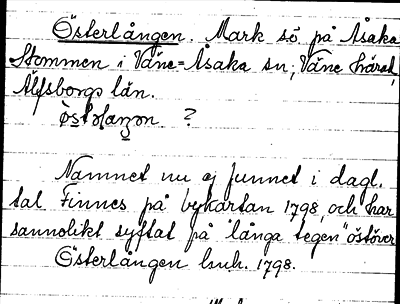 Österlången. Mark sö på Åsaka
Stommen i Väne-Åsaka sn, Väne härad,
Älfsborgs län.
?
Namnet nu ej funnet i dagl.
tal Finnes på bykartan 1798, och har
sannolikt syftat på långa tegen "östöver
Österlången lm.h. 1798.